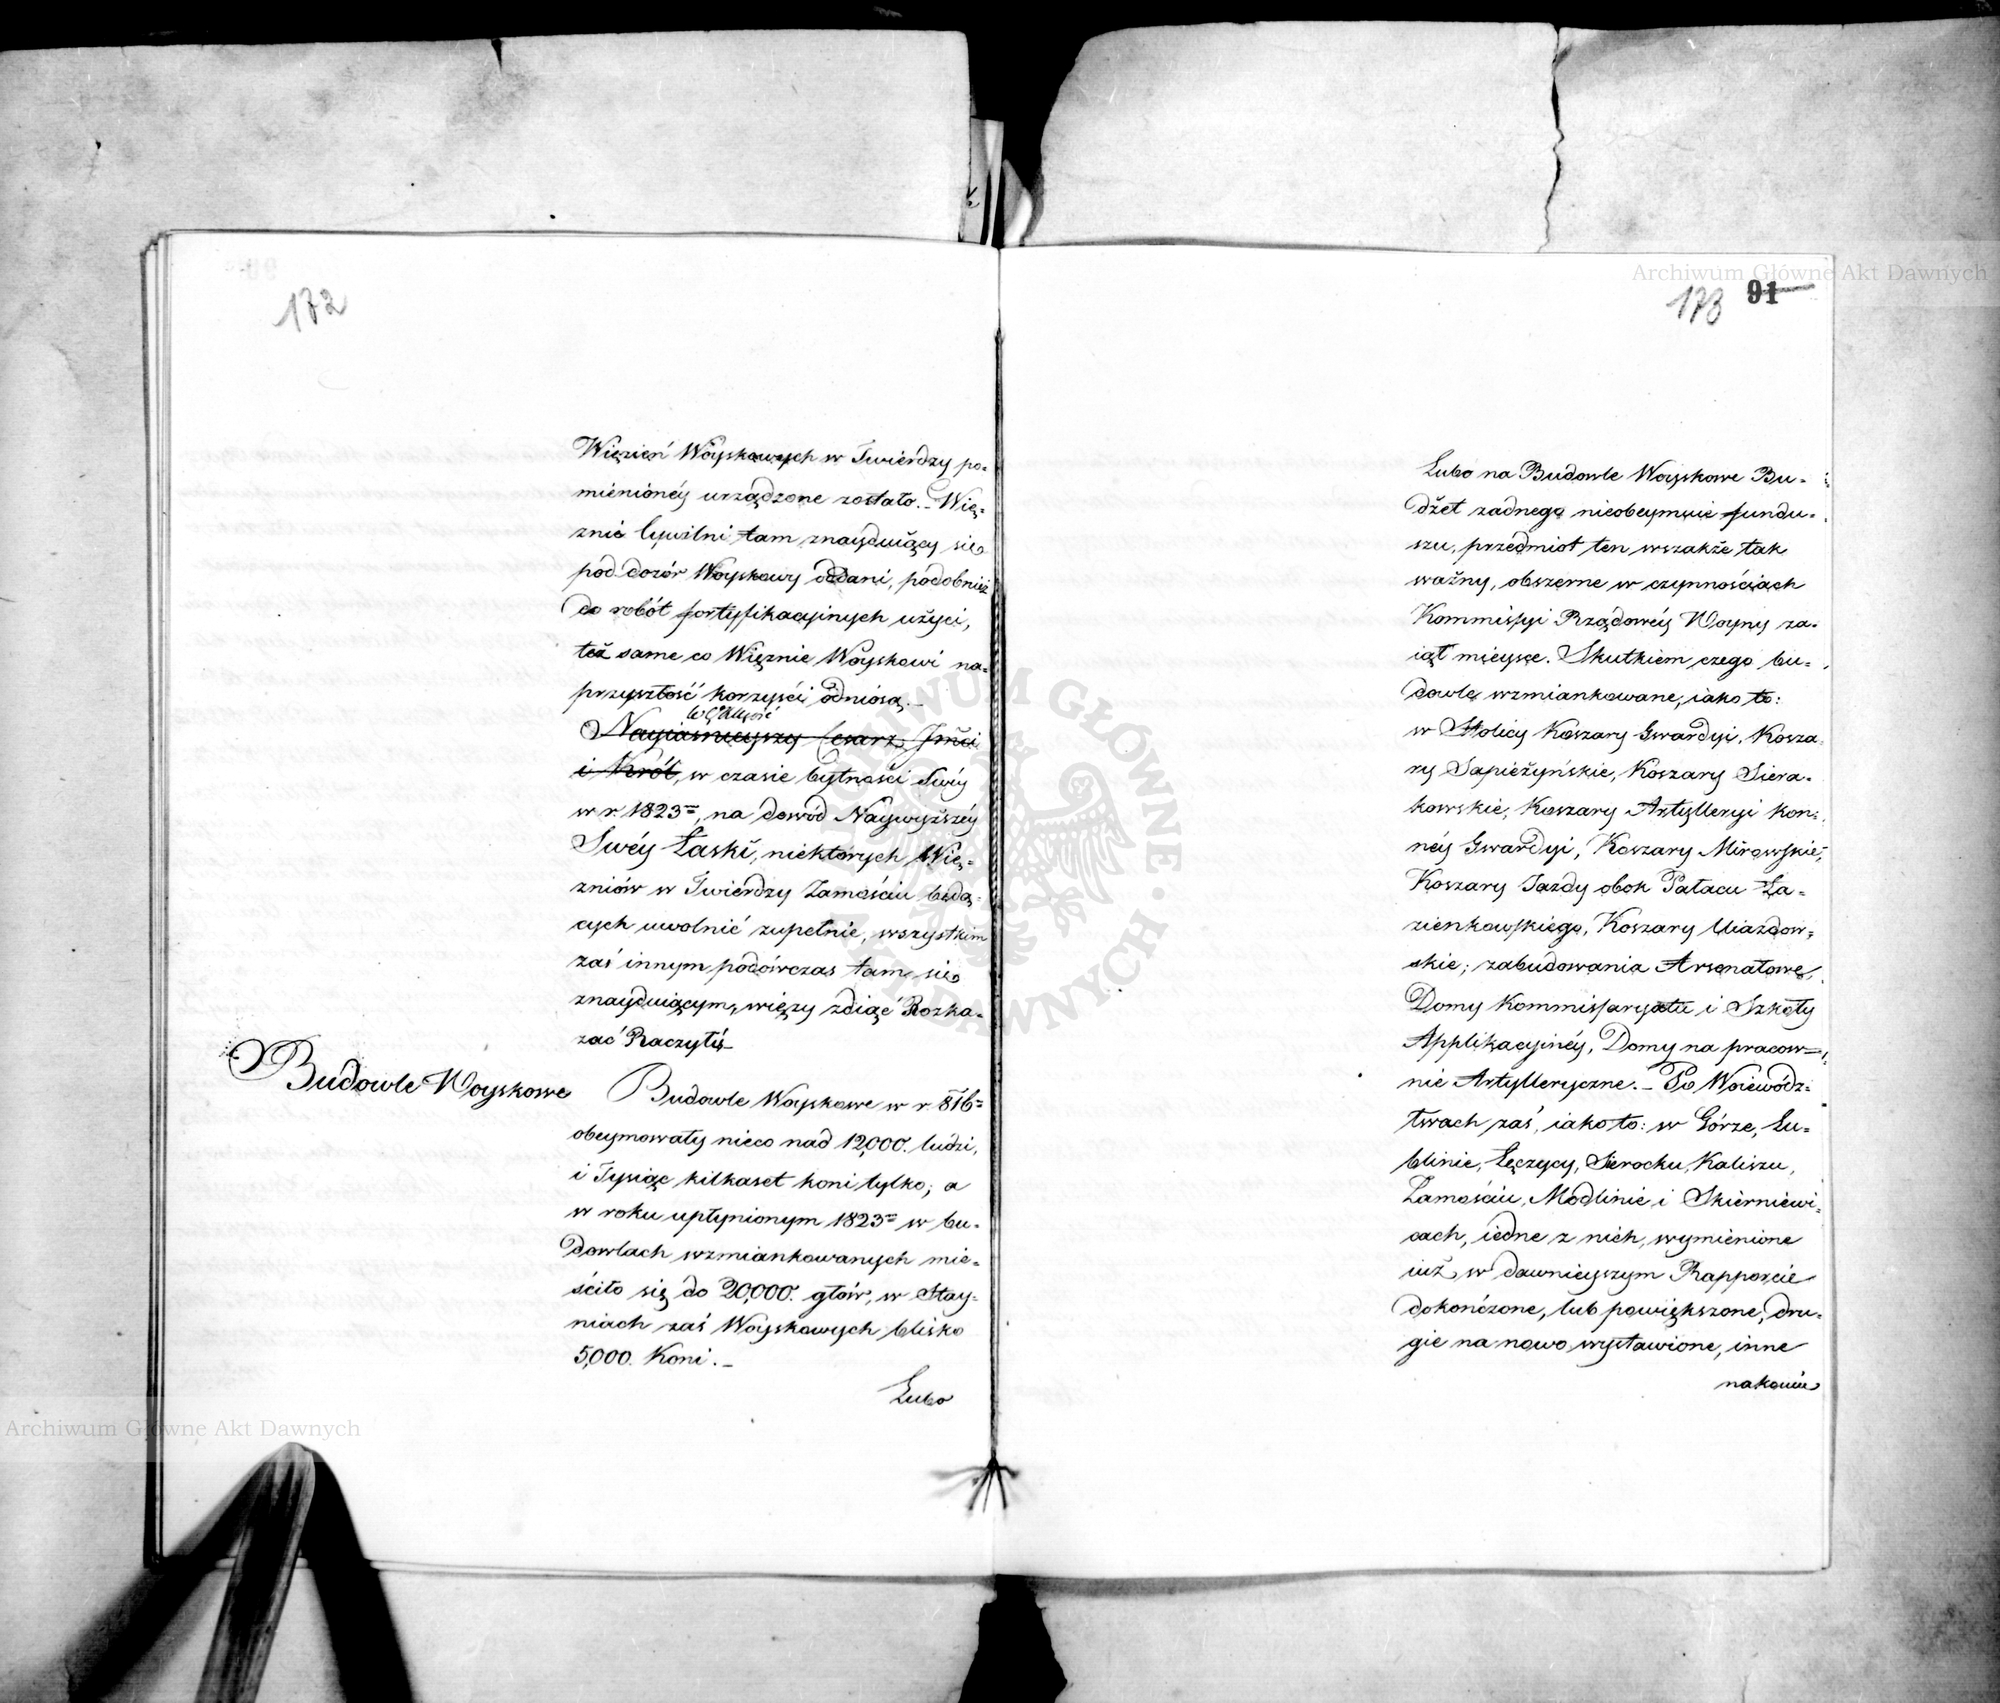 172
Więzień Woyskowych w Twierdzy po-
mienionéy urządzone zostało. - Więź-
znie Cywilni tam znayduiący się
pod dozór Woyskowy oddani, podobnież
do robót fortyfikacyinych użyci,
też same co Więznie Woyskowi na-
przyszłość korzyści odniosą. -
Nayiaśnieyszy Cesarz Jmći
i Król, w czasie bytności Swéy
w r. 1823m, na dowód Naywyższéy
Swéy Łaski, niektórych Wię-
zniów w Twierdzy Zamościu będą-
cych uwolnić zupełnie, wszystkim
zaś innym podówczas tam się
znayduiącym, więzy zdiąć Rozka-
zać Raczyłeś -
Budowle Woyskowe
Budowle Woyskowe w r 816m
obeymowały nieco nad 12,000. ludzi,
i Tysiąc kilkaset koni tylko; a
w roku upłynionym 1823m w bu-
dowlach wzmiankowanych mie-
ściło się do 20,000. głów, w Stay-
niach zaś Woyskowych blisko
5,000. Koni. -
Lubo
Archiwum Główne Akt Dawnych
173 91
Lubo na Budowle Woyskowe Bu-
dżet żadnego nieobeymuie fundu-
szu, przedmiot ten wszakże tak
ważny, obszerne w czynnościach
Kommissyi Rządowéy Woyny za-
iął mieysce. Skutkiem czego bu-
dowle wzmiankowane, iako to:
w Stolicy Koszary Gwardyi, Kosza-
ry Sapieżyńskie, Koszary Siera-
kowskie, Koszary Artylleryi kon-
néy Gwardyi, Koszary Mirowskie,
Koszary Jazdy obok Pałacu Ła-
zienkowskiego, Koszary Uiazdow-
skie; zabudowania Arsenałowe,
Domy Kommissaryatu i Szkoły
Applikacyinéy, Domy na pracow-
nie Artylleryczne. - Po Woiewódz-
twach zaś, iako to: w Górze, Lu-
blinie, Łęczycy, Sierocku, Kaliszu,
Zamościu, Modlinie i Skierniewi-
cach, iedne z nich, wymienione
iuż w dawnieyszym Rapporcie
dokończone, lub powiększone, dru-
gie na nowo wystawione, inne
nakoniec
Archiwum Główne Akt Dawnych
ARCHIWUM GŁÓWNE AKT DAWNYCH